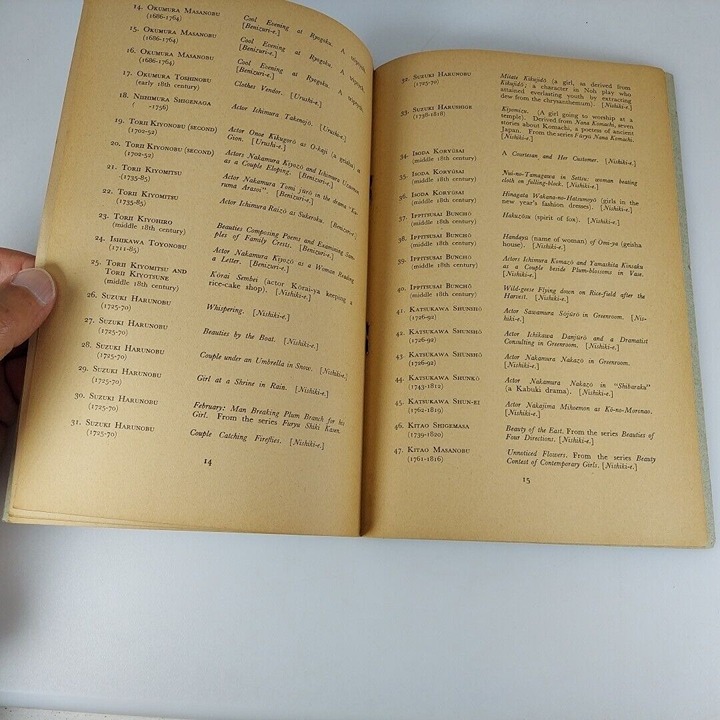 14. OKUMURA MASANOBU Cool Evening at Ryogoku. A
(1686-1764) [Benizuri-e.]
15. OKUMURA MASANOBU Cool Evening at Ryogoku. A
(1686-1764) [Benizuri-e.]
16. OKUMURA MASANOBU Cool Evening at Ryogoku. A
(1686-1764) [Benizuri-e.]
17. OKUMURA TOSHINOBU Clothes Vendor. [Urushi-e.]
(early 18th century)
18. NISHIMURA SHIGENAGA Actor Ichimura Takenojō. [Urushi-e.]
( -1756)
19. TORII KIYONOBU (SECOND) Actor Onoe Kikugorō as O-kaji (a geisha) of
(1702-52) Gion. [Urushi-e.]
20. TORII KIYONOBU (SECOND) Actors Nakamura Kiyozō and Ichimura Uzaemon
(1702-52) as a Couple Eloping. [Benizuri-e.]
21. TORII KIYOMITSU Actor Nakamura Tomi jūrō in the drama "Ku-
(1735-85) ruma Arasoi". [Benizuri-e.]
22. TORII KIYOMITSU Actor Ichimura Raizō as Sukeroku. [Benizuri-e.]
(1735-85)
23. TORII KIYOHIRO Beauties Composing Poems and Examining Sam-
(middle 18th century) ples of Family Crests. [Benizuri-e.]
24. ISHIKAWA TOYONOBU Actor Nakamura Kiyozō as a Woman Reading
(1711-85) a Letter. [Benizuri-e.]
25. TORII KIYOMITSU AND Kōrai Sembei (actor Kōrai-ya keeping a
TORII KIYOTSUNE rice-cake shop). [Nishiki-e.]
(middle 18th century)
26. SUZUKI HARUNOBU Whispering. [Nishiki-e.]
(1725-70)
27. SUZUKI HARUNOBU Beauties by the Boat. [Nishiki-e.]
(1725-70)
28. SUZUKI HARUNOBU Couple under an Umbrella in Snow. [Nishiki-e.]
(1725-70)
29. SUZUKI HARUNOBU Girl at a Shrine in Rain. [Nishiki-e.]
(1725-70)
30. SUZUKI HARUNOBU February: Man Breaking Plum Branch for his
(1725-70) Girl. From the series Furyu Shiki Kasen.
31. SUZUKI HARUNOBU Couple Catching Fireflies. [Nishiki-e.]
(1725-70)
14
32. SUZUKI HARUNOBU Mitate Kikujidō (a girl, as derived from
(1725-70) Kikujidō, a character in Noh play who
attained everlasting youth by extracting
dew from the chrysanthemum). [Nishiki-e.]
33. SUZUKI HARUSHIGE Kiyomizu. (A girl going to worship at a
(1738-1818) temple). Derived from Nana Komachi, seven
stories about Komachi, a poetess of ancient
Japan. From the series Furyu Nana Komachi.
34. ISODA KORYŪSAI A Courtesan and Her Customer. [Nishiki-e.]
(middle 18th century)
35. ISODA KORYŪSAI Nui-no-Tamagawa in Settsu: woman beating
(middle 18th century) cloth on fulling-block. [Nishiki-e.]
36. ISODA KORYŪSAI Hinagata Wakana-no-Hatsumoyō (girls in the
(middle 18th century) new year's fashion dresses). [Nishiki-e.]
37. IPPITSUSAI BUNCHŌ Hakuzōsu (spirit of fox). [Nishiki-e.]
(middle 18th century)
38. IPPITSUSAI BUNCHŌ Handayū (name of woman) of Omi-ya (geisha
(middle 18th century) house). [Nishiki-e.]
39. IPPITSUSAI BUNCHŌ Actors Ichimura Komazō and Yamashita Kinsaku
(middle 18th century) as a Couple beside Plum-blossoms in Vase.
[Nishiki-e.]
40. IPPITSUSAI BUNCHŌ Wild-geese Flying down on Rice-field after the
(middle 18th century) Harvest. [Nishiki-e.]
41. KATSUKAWA SHUNSHŌ Actor Sawamura Sōjūrō in Greenroom. [Nis-
(1726-92) hiki-e.]
42. KATSUKAWA SHUNSHŌ Actor Ichikawa Danjūrō and a Dramatist
(1726-92) Consulting in Greenroom. [Nishiki-e.]
43. KATSUKAWA SHUNSHŌ Actor Nakamura Nakazō in Greenroom.
(1726-92) [Nishiki-e.]
44. KATSUKAWA SHUNKŌ Actor Nakamura Nakazo in "Shibaraku"
(1743-1812) (a Kabuki drama). [Nishiki-e.]
45. KATSUKAWA SHUN-EI Actor Nakajima Mihoemon as Kō-no-Moronao.
(1762-1819) [Nishiki-e.]
46. KITAO SHIGEMASA Beauty of the East. From the series Beauties of
(1739-1820) Four Directions. [Nishiki-e.]
47. KITAO MASANOBU Unnoticed Flowers. From the series Beauty
(1761-1816) Contest of Contemporary Girls. [Nishiki-e.]
15